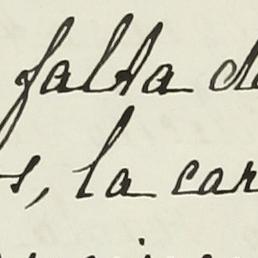 falta de
s, la car